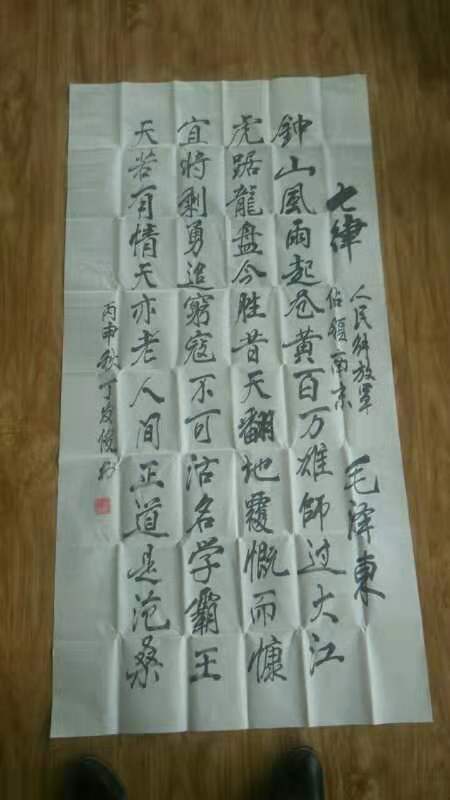 七律
人民解放軍
佔領南京
毛泽東
鐘山風雨起苍黄百万雄師过大江
虎踞龍盘今胜昔天翻地覆慨而慷
宜将剩勇追窮寇不可沽名学霸王
天若有情天亦老人间正道是沧桑
丙申秋丁发俊书